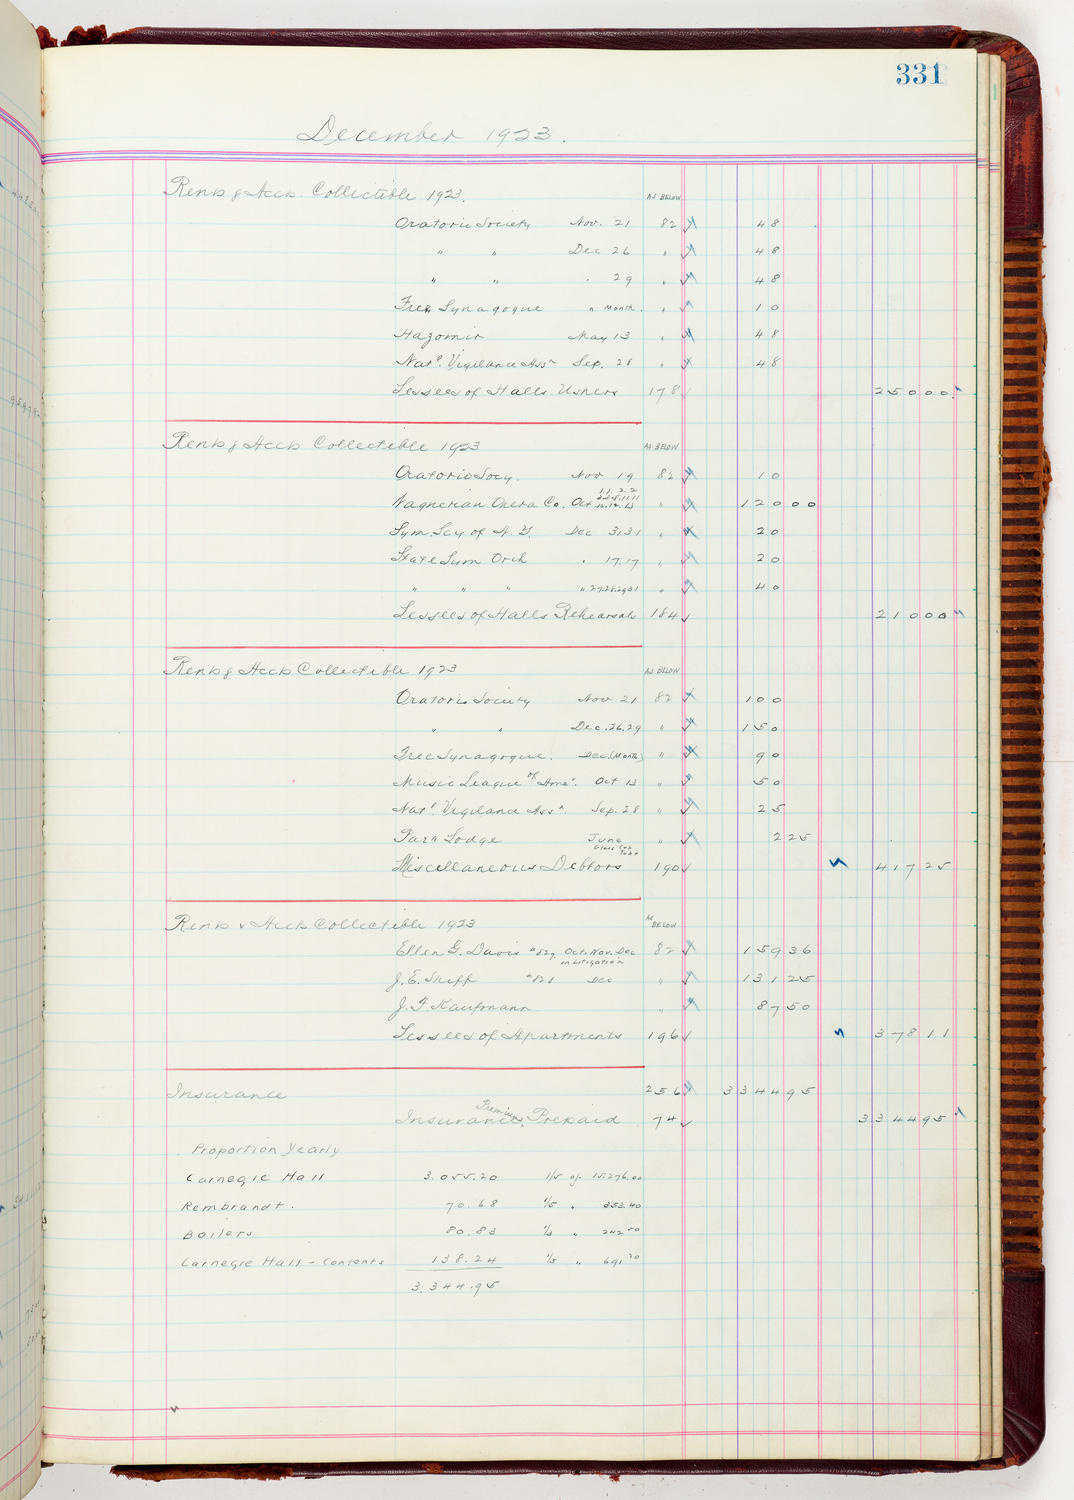 331
December 1923.
Rents & Accts Collectible 1923. AS BELOW
Oratorio Society Nov. 21 82 48
" " Dec 26 " 48
" " . 29 " 48
Free Synagogue " Month. " 10
Hazomir May 13 " 48
Natl. Vigilance Assn Sep. 28 " 48
Lessees of Halls Ushers 178 25000
Rents & Accts Collectible 1923 AS BELOW
Oratorio Socy. Nov 19 82 10
Wagnerian Opera Co. Oct 12000
Sym. Scy of N.Y. Dec 31,31 " 20
State Sym Orch " 17,17 " 20
" " " " 27.28.29.31 " 40
Lessees of Halls Rehearsals 184 21000
Rents & Accts Collectible 1923 AS BELOW
Oratorio Society Nov 21 82 100
" " Dec. 26.29 " 150
Free Synagogue. Dec (Month) " 90
Music League of Amer. Oct 13 " 50
Natl. Vigilance Assn. Sep. 28 " 25
Lodge June " 225
Miscellaneous Debtors 190 41725
Rents & Accts Collectible 1923 AS BELOW
Ellen G. Davis #827 Oct. Nov. Dec 82 15936
in Litigation
J. E. Dec " 13125
J. F. Kaufmann " 8750
Lessees of Apartments 196 37811
Insurance 256 334495
Insurance Premiums Prepaid 74 334495
Proportion Yearly
Carnegie Hall 3.055.20 1/5 of 15.276.00
Rembrandt. 70.68 1/5 " 353.40
Boilers 80.83 1/3 " 242.50
Carnegie Hall - Contents 138.24 1/5 " 691.20
3.344.95